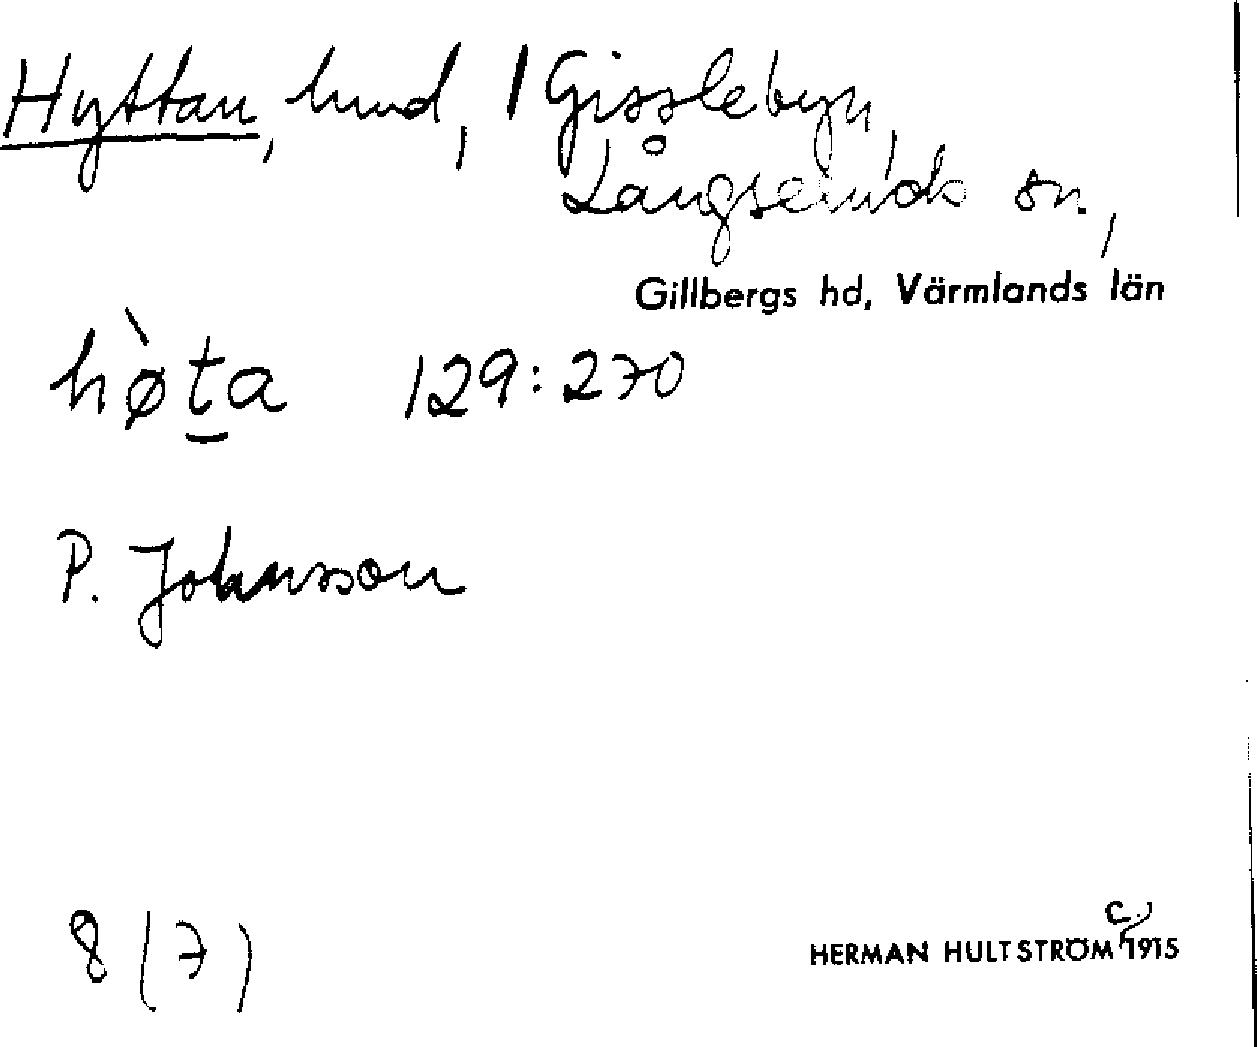 Hyttan, lund, / Gisslebyn,
Långseruds sn,
Gillbergs hd, Värmlands län
hø̀t̲a 129:270
P. Johansson
8 (7)
HERMAN HULTSTRÖM c. 1915